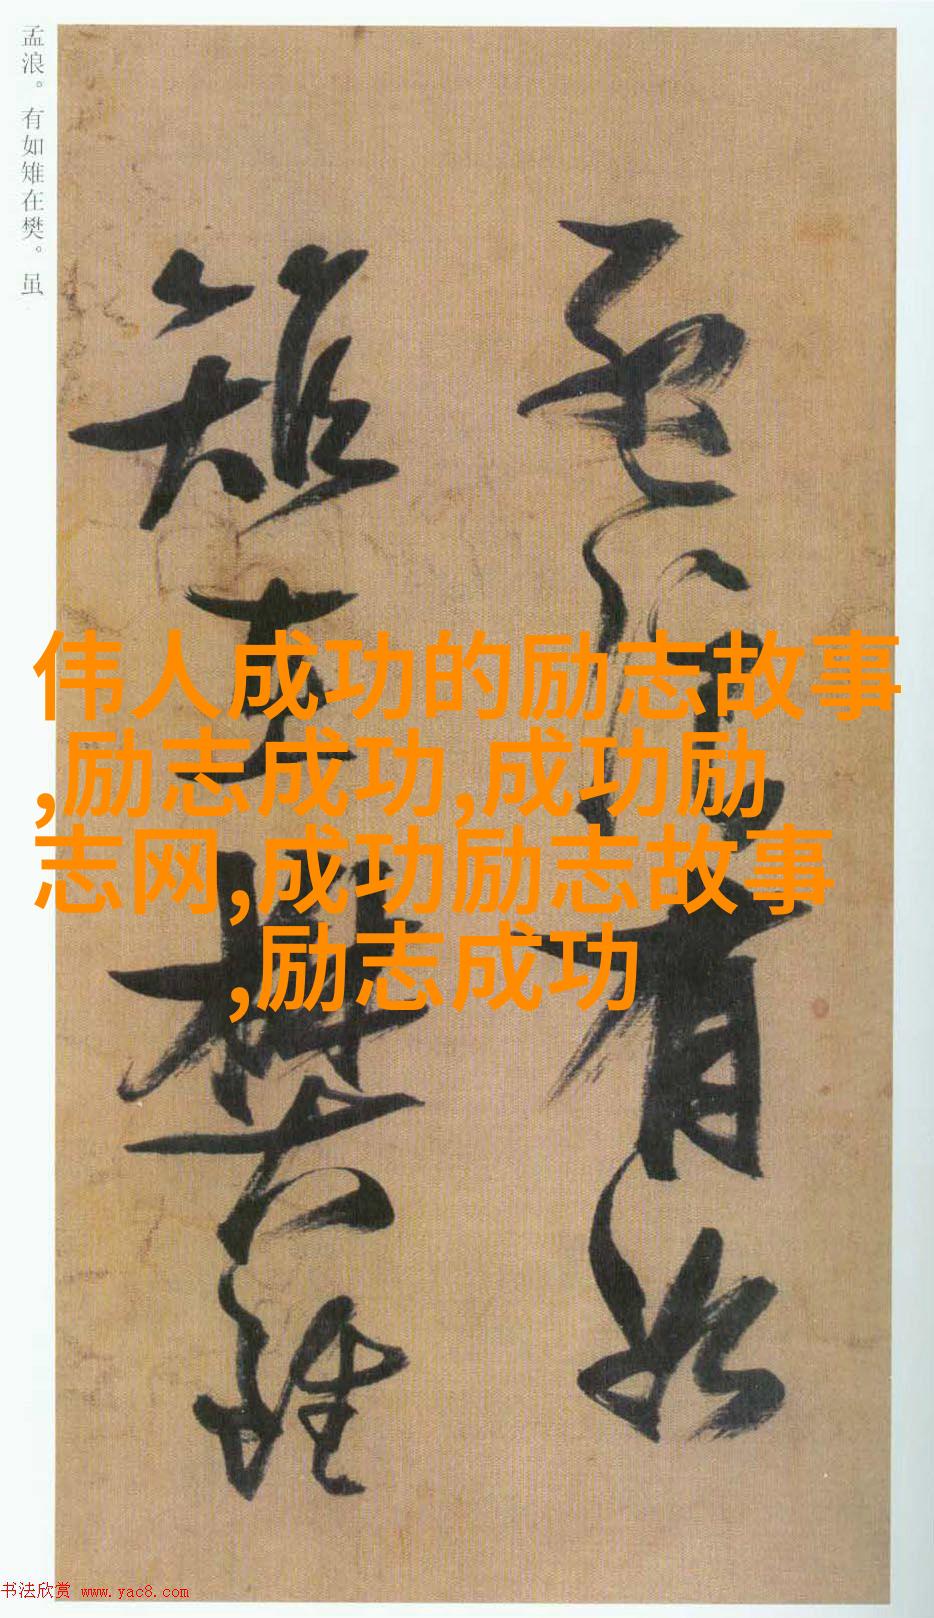 孟浪。有如雉在樊。虽
孟浪有如
雉在樊虽
伟人成功的励志故事
,励志成功,成功励
志网,成功励志故事
,励志成功
书法欣赏 www.yac8.com